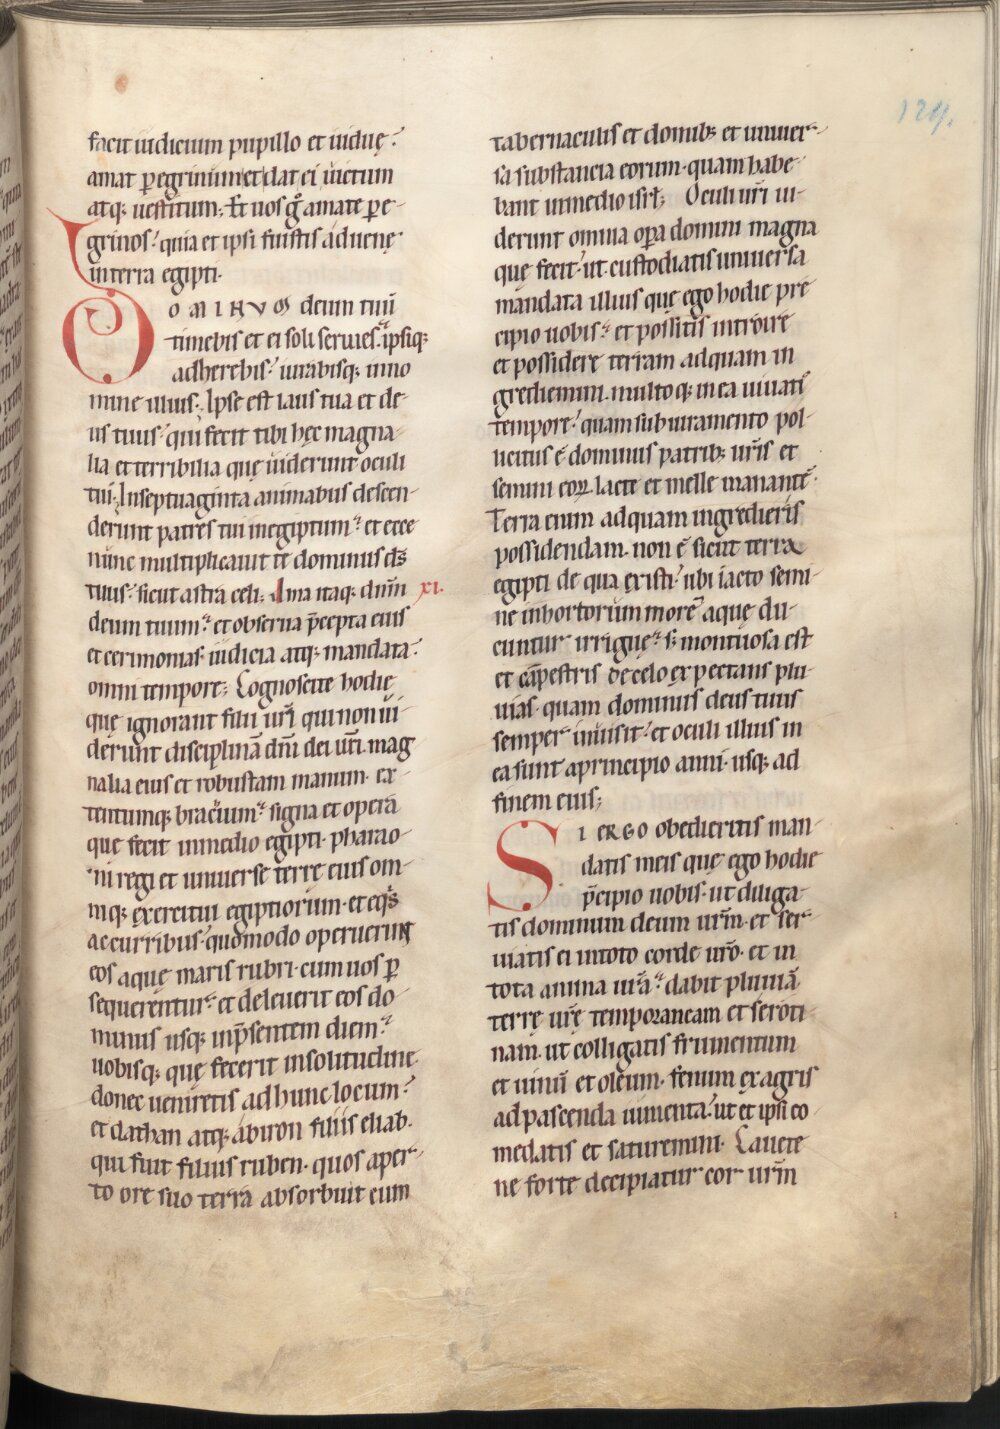 124.
facit iudicium pupillo et uiduę?
amat ꝑegrinum et dat ei uictum
atq; uestitum; Et uos g̊ amate pe-
grinos? quia et ipsi fuistis aduenę
in terra egipti.
DOMINUM deum tuū
timebis et ei soli seruies. ipsiq;
adherebis? iurabisq; in no
mine illius; Ipse est laus tua et de-
us tuus? qui fecit tibi hęc magna-
lia et terribilia quę uiderunt oculi
tui; In septuaginta animabus descen-
derunt patres tui in egiptum? et ecce
nunc multiplicauit te dominus ds̄
tuus? sicut astra celi; Ama itaq; dnm̄ xi.
deum tuum? et obserua p̄cepta eius
et cerimonias. iudicia atq; mandata?
omni tempore; Cognoscite hodie
quę ignorant filii urī qui non ui-
derunt disciplinā dnī dei urī. mag
nalia eius et robustam manum. ex-
tentumq; brachium? signa et opera
quę fecit in medio egipti. pharao-
ni regi et uniuersę terrę eius om-
niq; exercitui egiptiorum. et eq̇s
ac curribus. quomodo operuerint
eos aquę maris rubri. cum uos ꝑ
sequerentur? et deleuerit eos do-
minus usq; in p̄sentem diem?
uobisq; quę fecerit in solitudine.
donec ueniretis ad hunc locum?
et dathan atq; abiron filiis eliab.
qui fuit filius ruben. quos aper-
to ore suo terra absorbuit cum
tabernaculis et domib; et uniuer-
sa substancia eorum. quam habe-
bant in medio isrl; Oculi urī ui-
derunt omnia oꝑa domini magna
quę fecit? ut custodiatis uniuersa
mandata illius quę ego hodie prę
cipio uobis? et possitis introire
et possidere terram ad quam in
gredimini. multo q; in ea uiuatis
tempore? quam sub iuramento pol-
licitus ē dominus patrib; uris̄ et
semini eoꝝ. lacte et melle manantē.
Terra enim ad quam ingredieris
possidendam. non ē sicut terra
egipti de qua existi? ubi iacto semi-
ne in hortorum morē aquę du-
cuntur irriguę? s; montuosa est
et cāpestris de celo expectans plu-
uias. quam dominus deus tuus
semper inuisit? et oculi illius in
ea sunt a principio anni. usq; ad
finem eius;
SI ERGO obedieritis man-
datis meis quę ego hodie
p̄cipio uobis. ut diliga-
tis dominum deum urm̄. et ser-
uiatis ei in toto corde urō. et in
tota anima urā? dabit pluuiā
terrę urę̄ temporaneam et seroti-
nam. ut colligatis frumentum
et uinū et oleum. fenum ex agris
ad pascenda iumenta? ut et ipsi co-
medatis et saturemini. Cauete
ne forte decipiatur cor urm̄